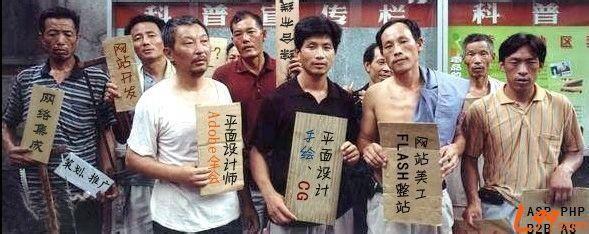 科普宣传栏
科普
网站开发
综合布线
网络集成
策划、推广
平面设计师
Adobe全会
平面设计
手绘、CG
网站美工
FLASH整站
ASP PHP
B2B AS